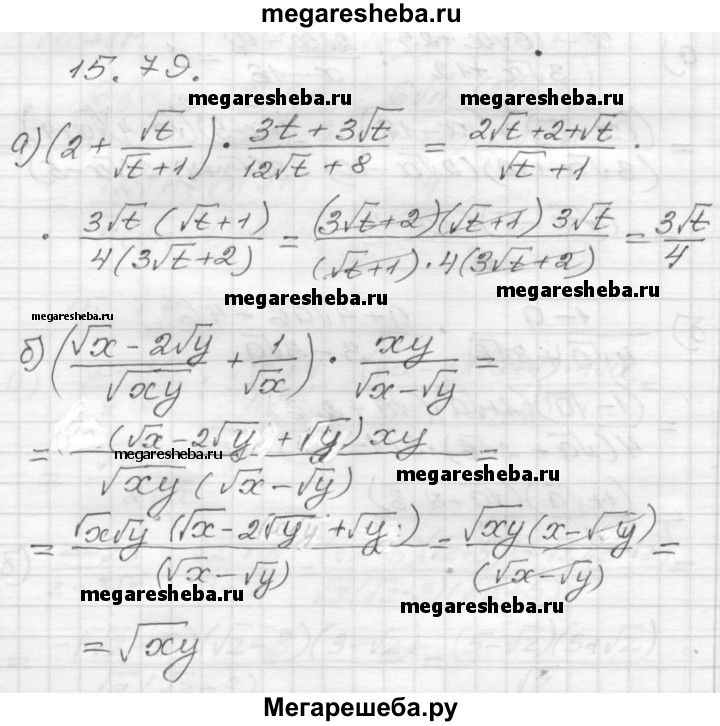 megaresheba.ru
15.79.
megaresheba.ru megaresheba.ru
а) (2 + √t/(√t + 1)) · (3t + 3√t)/(12√t + 8) = (2√t + 2 + √t)/(√t + 1) ·
· 3√t (√t + 1)/4(3√t + 2) = (3√t + 2)(√t + 1) 3√t/(√t + 1) · 4(3√t + 2) = 3√t/4
megaresheba.ru megaresheba.ru
megaresheba.ru
б) ((√x - 2√y)/√xy + 1/√x) · xy/(√x - √y) =
= (√x - 2√y + √y) xy/√xy (√x - √y) =
megaresheba.ru
megaresheba.ru
= √x√y (√x - 2√y + √y)/(√x - √y) = √xy (x - √y)/(√x - √y) =
megaresheba.ru
megaresheba.ru
= √xy
Мегарешеба.ру